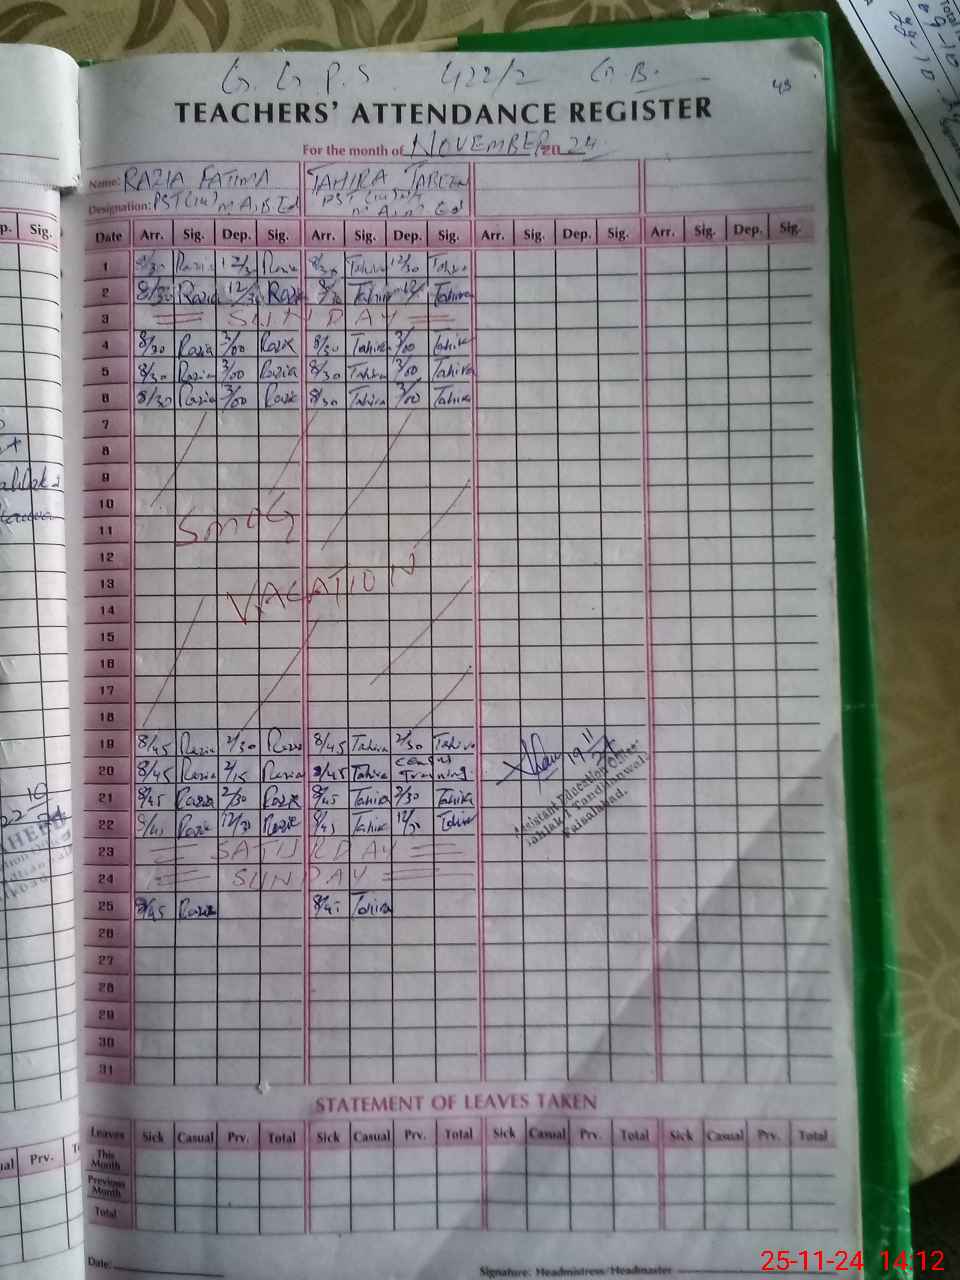 G. G. P. S. 422/2 G.B.
TEACHERS' ATTENDANCE REGISTER
For the month of NOVEMBER 20 24
Name: RAZIA FATIMA TAHIRA JABEEN
Designation: PST (14) M.A, B.Ed PST (14) M.A, M.Ed
Date Arr. Sig. Dep. Sig. Arr. Sig. Dep. Sig. Arr. Sig. Dep. Sig. Arr. Sig. Dep. Sig.
1 8/30 Razia 12/30 Razia 8/30 Tahira 12/30 Tahira
2 8/30 Razia 12/30 Razia 8/30 Tahira 12/ Tahira
3 SUNDAY
4 8/30 Razia 3/00 Razia 8/30 Tahira 3/00 Tahira
5 8/30 Razia 3/00 Razia 8/30 Tahira 3/00 Tahira
6 8/30 Razia 3/00 Razia 8/30 Tahira 3/00 Tahira
7
8
9
10
11 SMOG
12
13 VACATION
14
15
16
17
18
19 8/45 Razia 2/30 Razia 8/45 Tahira 2/30 Tahira
20 8/45 Razia 2/15 Razia 8/45 Tahira census Training
21 8/45 Razia 2/30 Razia 8/45 Tahira 2/30 Tahira
22 8/45 Razia 12/30 Razia 8/45 Tahira 12/30 Tahira
23 SATURDAY
24 SUNDAY
25 8/45 Razia 8/45 Tahira
26
27
28
29
30
31
19 11/24
Assistant Education Officer
Tandlianwala
Faisalabad.
STATEMENT OF LEAVES TAKEN
Leaves Sick Casual Prv. Total Sick Casual Prv. Total Sick Casual Prv. Total Sick Casual Prv. Total
This Month
Previous Month
Total
Date:
Signature: Headmistress/Headmaster
25-11-24 14:12